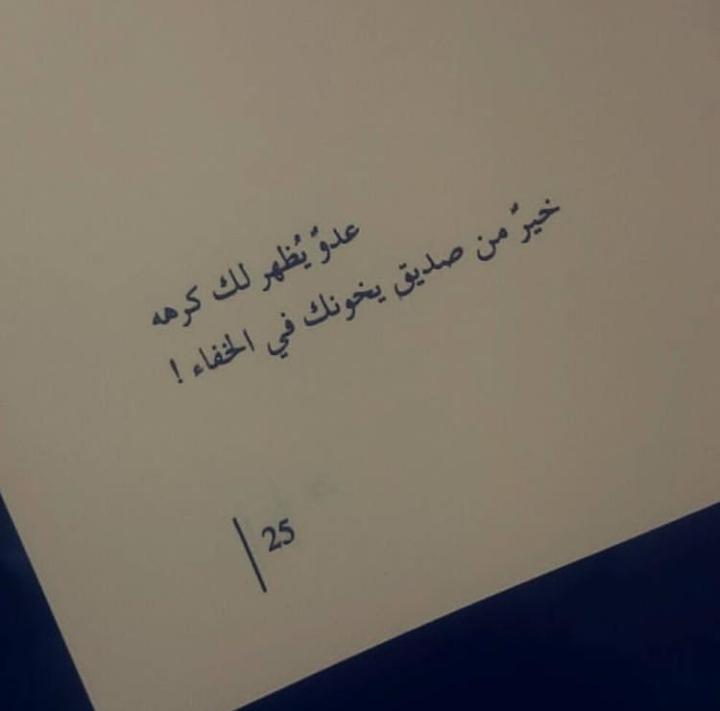 عدوٌ يُظهر لك كرهه
خيرٌ من صديقٍ يخونك في الخفاء !
25